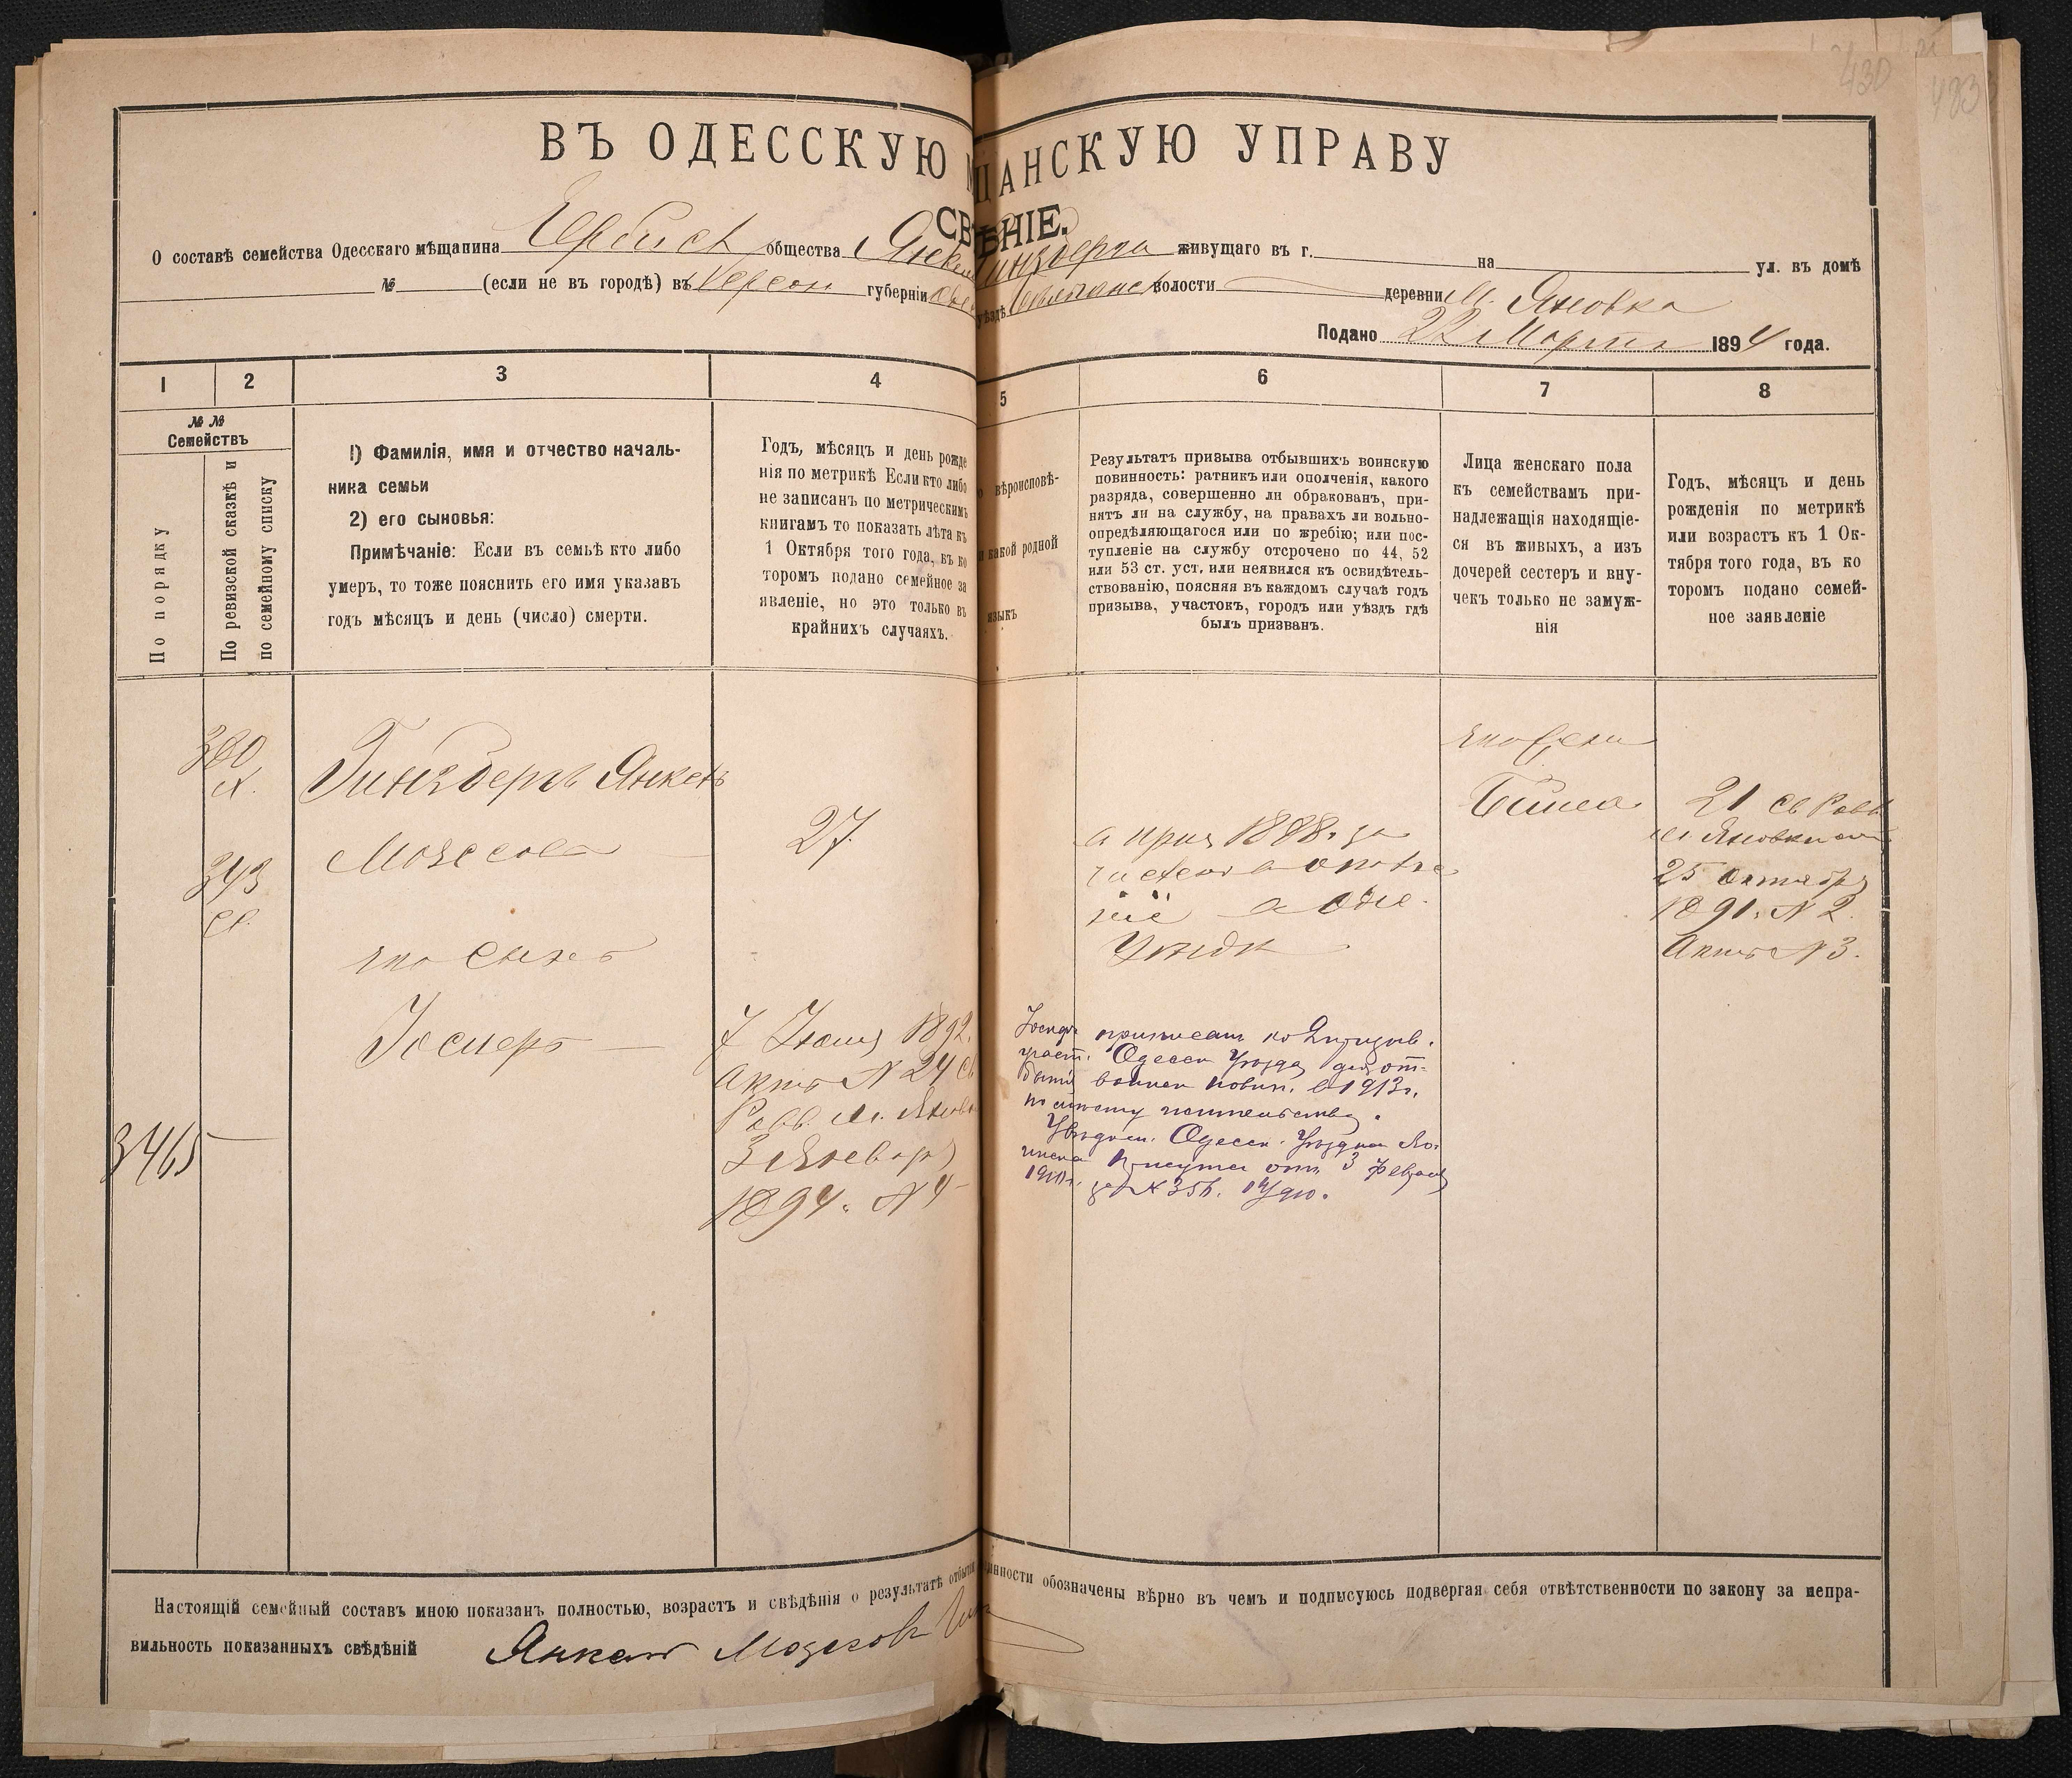 430
483
ВЪ ОДЕССКУЮ ЩАНСКУЮ УПРАВУ
СВ ѢНІЕ.
О составѣ семейства Одесскаго мѣщанина общества Янкел Гинзберга живущаго въ г. на ул. въ домѣ
№ (если не въ городѣ) въ Херсон губерніи уѣздѣ волости деревни м. Яновка
Подано 22 Марта 1894 года.
1 2 3 4 5 6 7 8
№ № Семействъ
По порядку
По ревизской сказкѣ и
по семейному списку
1) Фамилія, имя и отчество началь-
ника семьи
2) его сыновья:
Примѣчаніе: Если въ семьѣ кто либо
умеръ, то тоже пояснить его имя указавъ
годъ мѣсяцъ и день (число) смерти.
Годъ, мѣсяцъ и день рожде
нія по метрикѣ Если кто либо
не записанъ по метрическимъ
книгамъ то показать лѣта къ
1 Октября того года, въ ко
торомъ подано семейное за
явленіе, но это только въ
крайнихъ случаяхъ.
вѣроисповѣ-
какой родной
языкъ
Результатъ призыва отбывшихъ воинскую
повинность: ратникъ или ополченія, какого
разряда, совершенно ли обракованъ, при-
нятъ ли на службу, на правахъ ли вольно-
опредѣляющагося или по жребію; или пос-
тупленіе на службу отсрочено по 44, 52
или 53 ст. уст. или неявился къ освидѣтель-
ствованію, поясняя въ каждомъ случаѣ годъ
призыва, участокъ, городъ или уѣздъ гдѣ
былъ призванъ.
Лица женскаго пола
къ семействамъ при-
надлежащія находящіе-
ся въ живыхъ, а изъ
дочерей сестеръ и вну-
чекъ только не замуж-
нія
Годъ, мѣсяцъ и день
рожденія по метрикѣ
или возрастъ къ 1 Ок-
тября того года, въ ко
торомъ подано семей-
ное заявленіе
380
343
Гинзбергъ Янкель
Мозесовъ
27.
его сынъ
Іосиеръ
7 Іюня 1892.
Актъ № 24 Св
Рабб. м. Яновк
3 Января
1894. № 4
3465
1888. за
в Одес.
Уѣздѣ
приписан
Одесск Уѣзда для от-
бытія воинск повин. в 1913г.
по мѣсту жительства.
Увѣдом. Одесск. Уѣздна Во-
инска Присутс отъ 3 Феврал
1910г. за № 356.
его жена
Бейла
21 Св Рабб.
м. Яновки от
25 Октября
1891. № 2.
Актъ № 3.
Настоящій семейный составъ мною показанъ полностью, возрастъ и свѣдѣнія о результатѣ отбытія инности обозначены вѣрно въ чемъ и подписуюсь подвергая себя отвѣтственности по закону за непра-
вильность показанныхъ свѣдѣній Янкель Мозесовъ